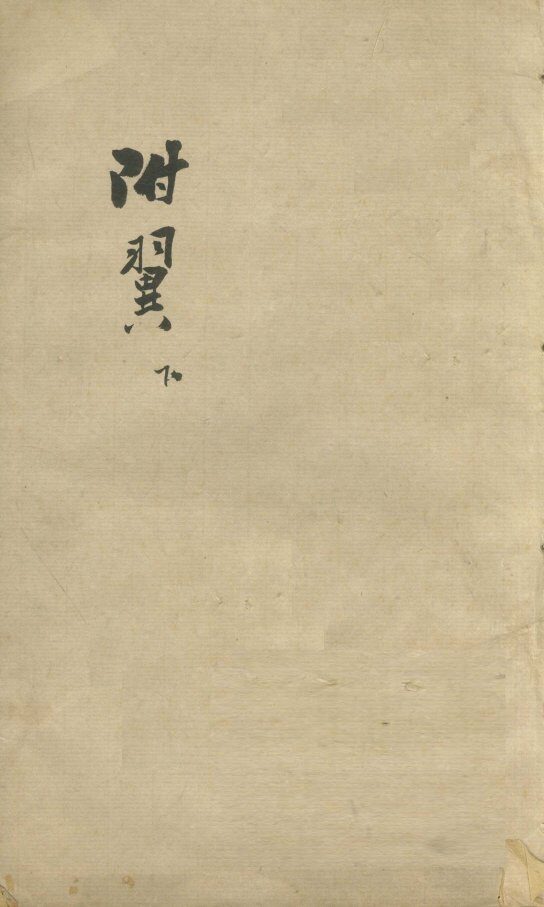 附翼下